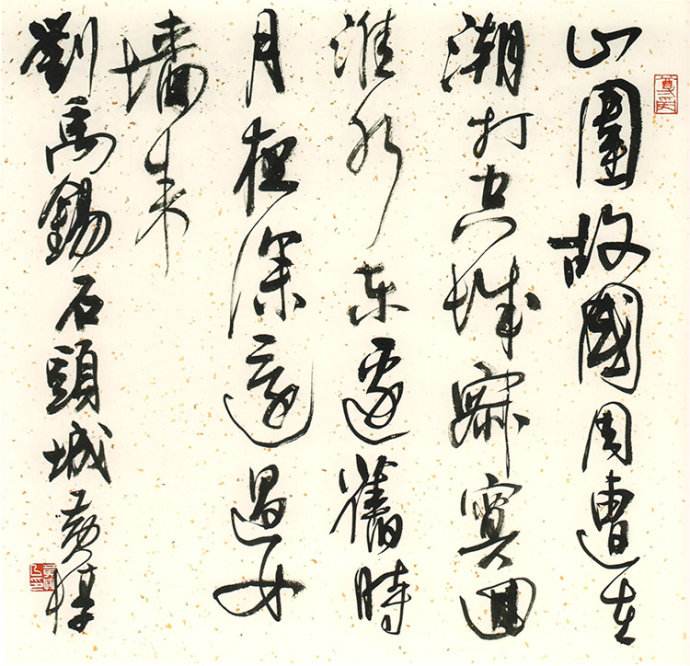 山圍故國周遭在
潮打空城寂寞迴
淮水東邊舊時
月夜深還過女
墙来
劉禹錫石頭城 黄惇